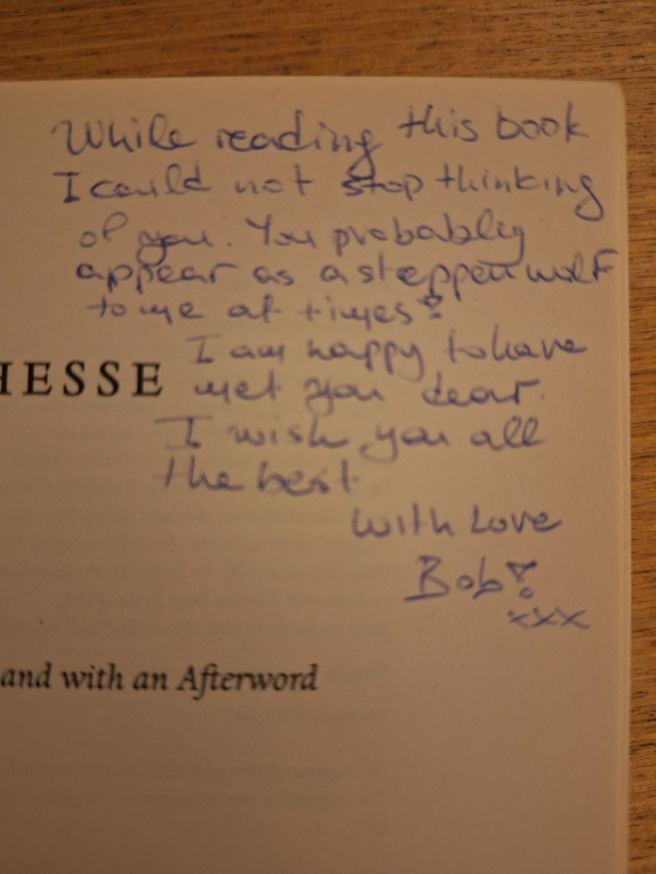 While reading this book
I could not stop thinking
of you. You probably
appear as a steppenwolf
to me at times!
I am happy to have
HESSE
met you dear.
I wish you all
the best.
With Love
Bob!
xxx
and with an Afterword